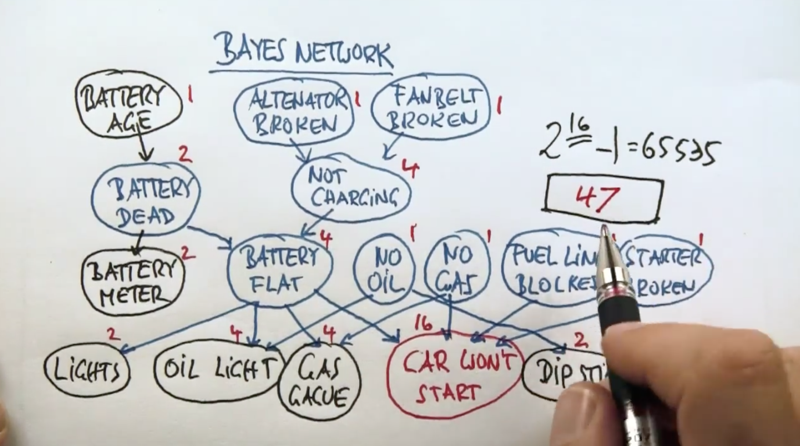 BAYES NETWORK
BATTERY
AGE
1
ALTENATOR
BROKEN
1
FANBELT
BROKEN
1
2^16 - 1 = 65535
47
BATTERY
DEAD
2
NOT
CHARGING
4
BATTERY
METER
2
BATTERY
FLAT
4
NO
OIL
1
NO
GAS
1
FUEL LIN
BLOCKE
STARTER
ROKEN
1
LIGHTS
2
OIL LIGHT
4
GAS
GAGUE
4
CAR WON'T
START
16
DIP STI
2